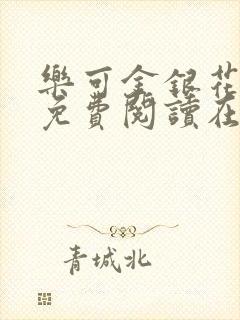 樂可金銀花
免費閱讀在
青城北